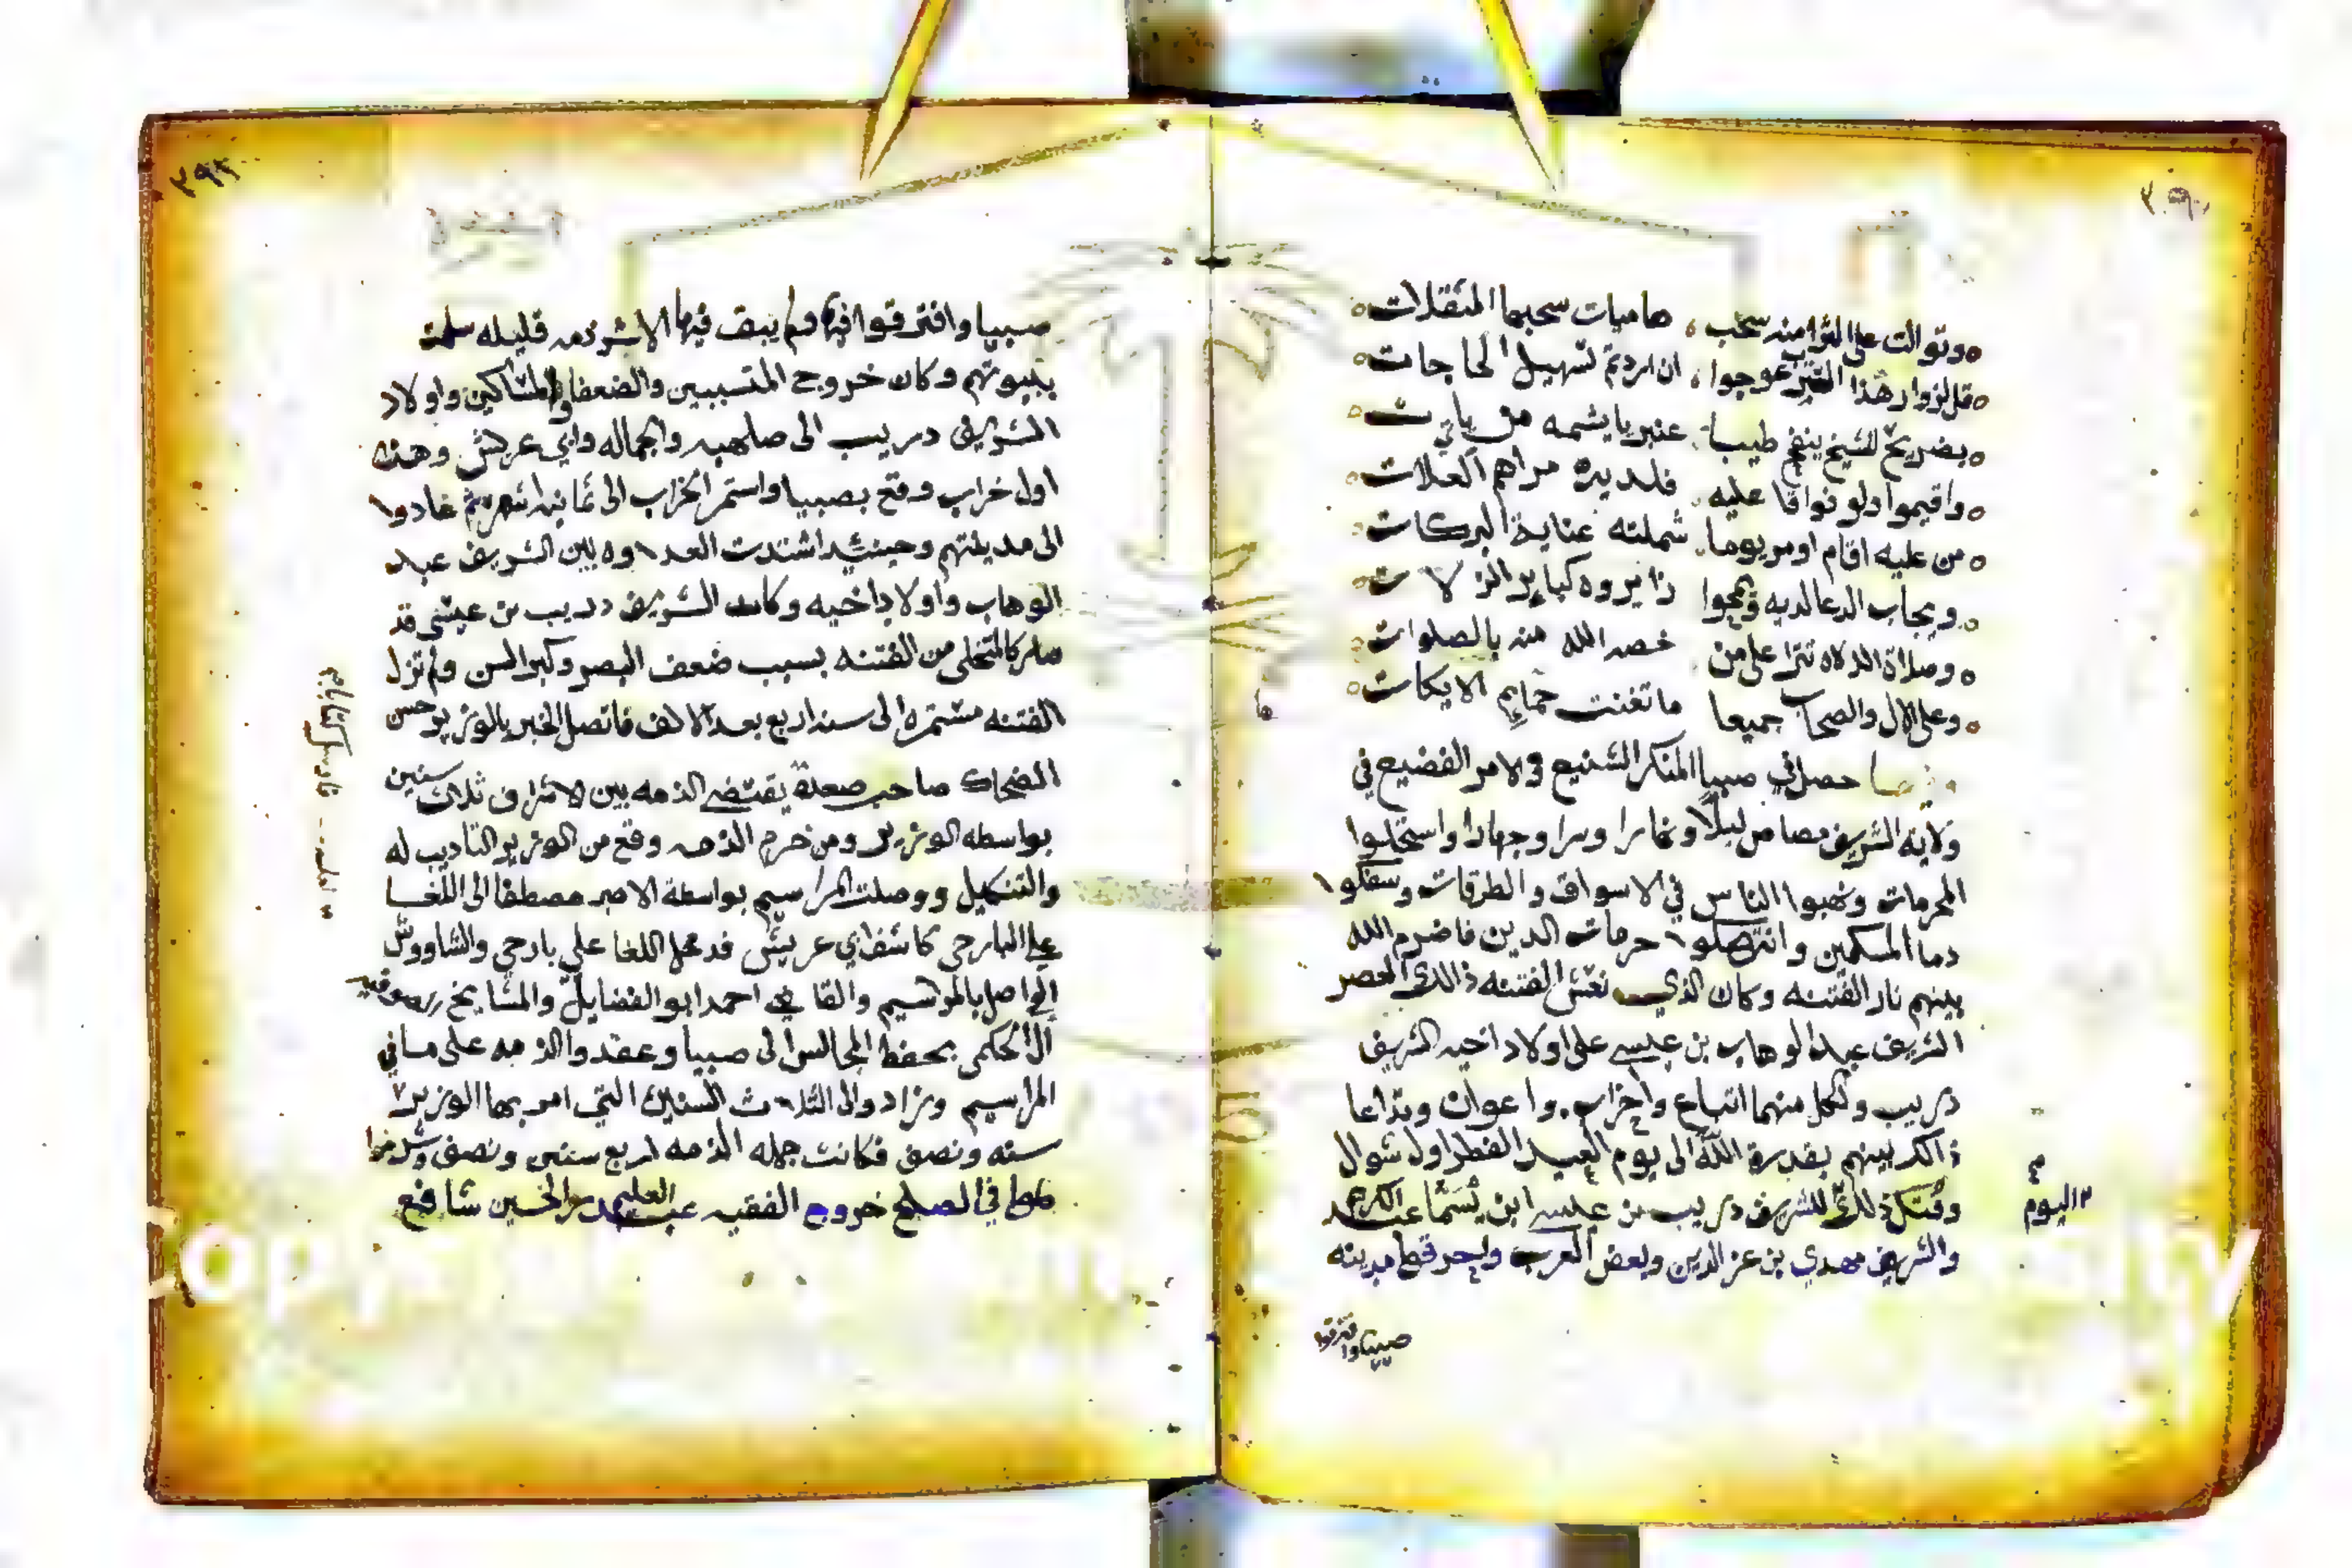 وتوالت على الثرا منه سحب هاميات سحبها المثقلات
قل لزوار هذا القبر عوجوا ان اردتم تسهيل الحاجات
بضريح للشيخ ينفح طيبا عنبريا يشمه من ياتي
واقيموا ولو فواقا عليه فلديه مراهم العلات
من عليه اقام او مر يوما شملته عناية البركات
ويجاب الدعا لديه وتمحوا زايروه كباير الزلات
وصلاة الاله تترا على من خصه الله منه بالصلوات
وعلى الال والصحاب جميعا ما تغنت حمايم الايكات
حصل في صبيا المنكر الشنيع والامر الفضيع في
ولاية الشريف ليلا ونهارا وسرا وجهارا واستحلوا
المحرمات ونهبوا الناس في الاسواق والطرقات وسفكوا
دما المسلمين وانتهكوا حرمات الدين فاضرم الله
بينهم نار الفتنه وكان الذي نعش الفتنه ذالك العصر
الشريف عبد الوهاب بن عيسى على اولاد اخيه الشريف
دريب ولكل منهما اتباع واحزاب واعوان وتداعا
ذالك بينهم بقدرة الله الى يوم العيد الفطر اول شوال
وقتل ذلك للشريف دريب بن عيسى ابن يسما عبد الكريم
والشريف مهدي بن عز الدين وبعض العرب مدينه
اليوم
صبيا وافترقوا
صبيا وافترقوا فيها ولم يبق فيها الا شرذمه قليله سلمت
بيوتهم وكان خروج المتسببين والضعفا والمساكين واولاد
الشريف دريب الى صلهبه والجماله وابي عريش وهذه
اول خراب وقع بصبيا واستمر الخراب الى ثمانيه اشهر ثم عادوا
الى مدينتهم وحينئذ اشتدت العداوه بين الشريف عبد
الوهاب واولاد اخيه وكان الشريف دريب بن عيسى قد
صار كالمتخلي من الفتنه بسبب ضعف البصر وكبر السن ولم تزل
الفتنه مستمره الى سنه اربع بعد الالف فاتصل الخبر بالوزير حسن
الضحاك صاحب صعدة يقتضى الذمه بين الاشراف ثلاث سنين
بواسطه الوزير ومن خرم الذمه وقع من الوزير التاديب له
والتنكيل ووصلت المراسيم بواسطة الامير مصطفا الى اللغا
علي البارحي كاشف ابي عريش اللغا علي بارحي والشاووش
الواصل بالمراسيم والقاضي احمد ابو الفضايل والمشايخ
ال الحكمي بحفظ المجالس الى صبيا وعقدوا الذمه على ما في
المراسيم وزادوا الى الثلاث السنين التي امر بها الوزير
سنه ونصف فكانت جمله الذمه اربع سنين ونصف وشرطوا
في الصلح خروج الفقيه عبد العليم بن الحسين شافع